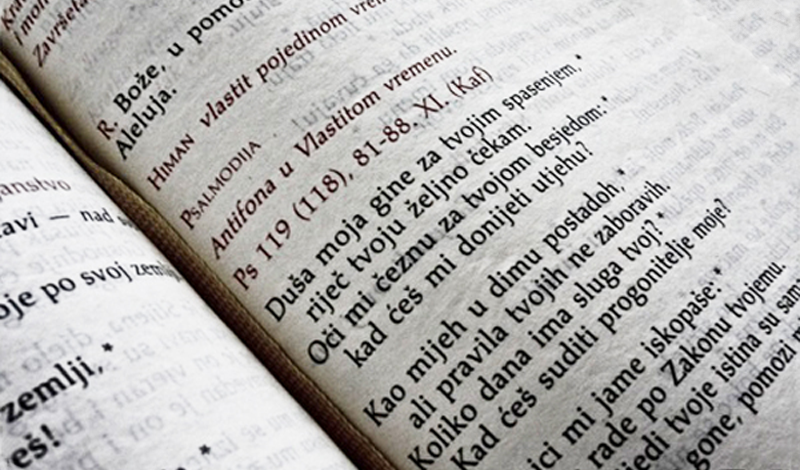 Završet
R. Bože, u pomoć
Aleluja.
HIMAN vlastit pojedinom vrem
PSALMODIJA
Antifona u Vlastitom vremenu.
Ps 119 (118), 81-88. XI. (Kaf)
Duša moja gine za tvojim spasenjem,*
riječ tvoju željno čekam.
Oči mi čeznu za tvojom besjedom:*
kad ćeš mi donijeti utjehu?
Kao mijeh u dimu postadoh,*
ali pravila tvojih ne zaboravih.
Koliko dana ima sluga tvoj?*
Kad ćeš suditi progonitelje moje?
ici mi jame iskopaše:*
rade po Zakonu tvojemu.
jedi tvoje istina su sam
gone, pomozi m
anstvo
avi — nad
oje po svoj zemlj
zemlji,*
eš!